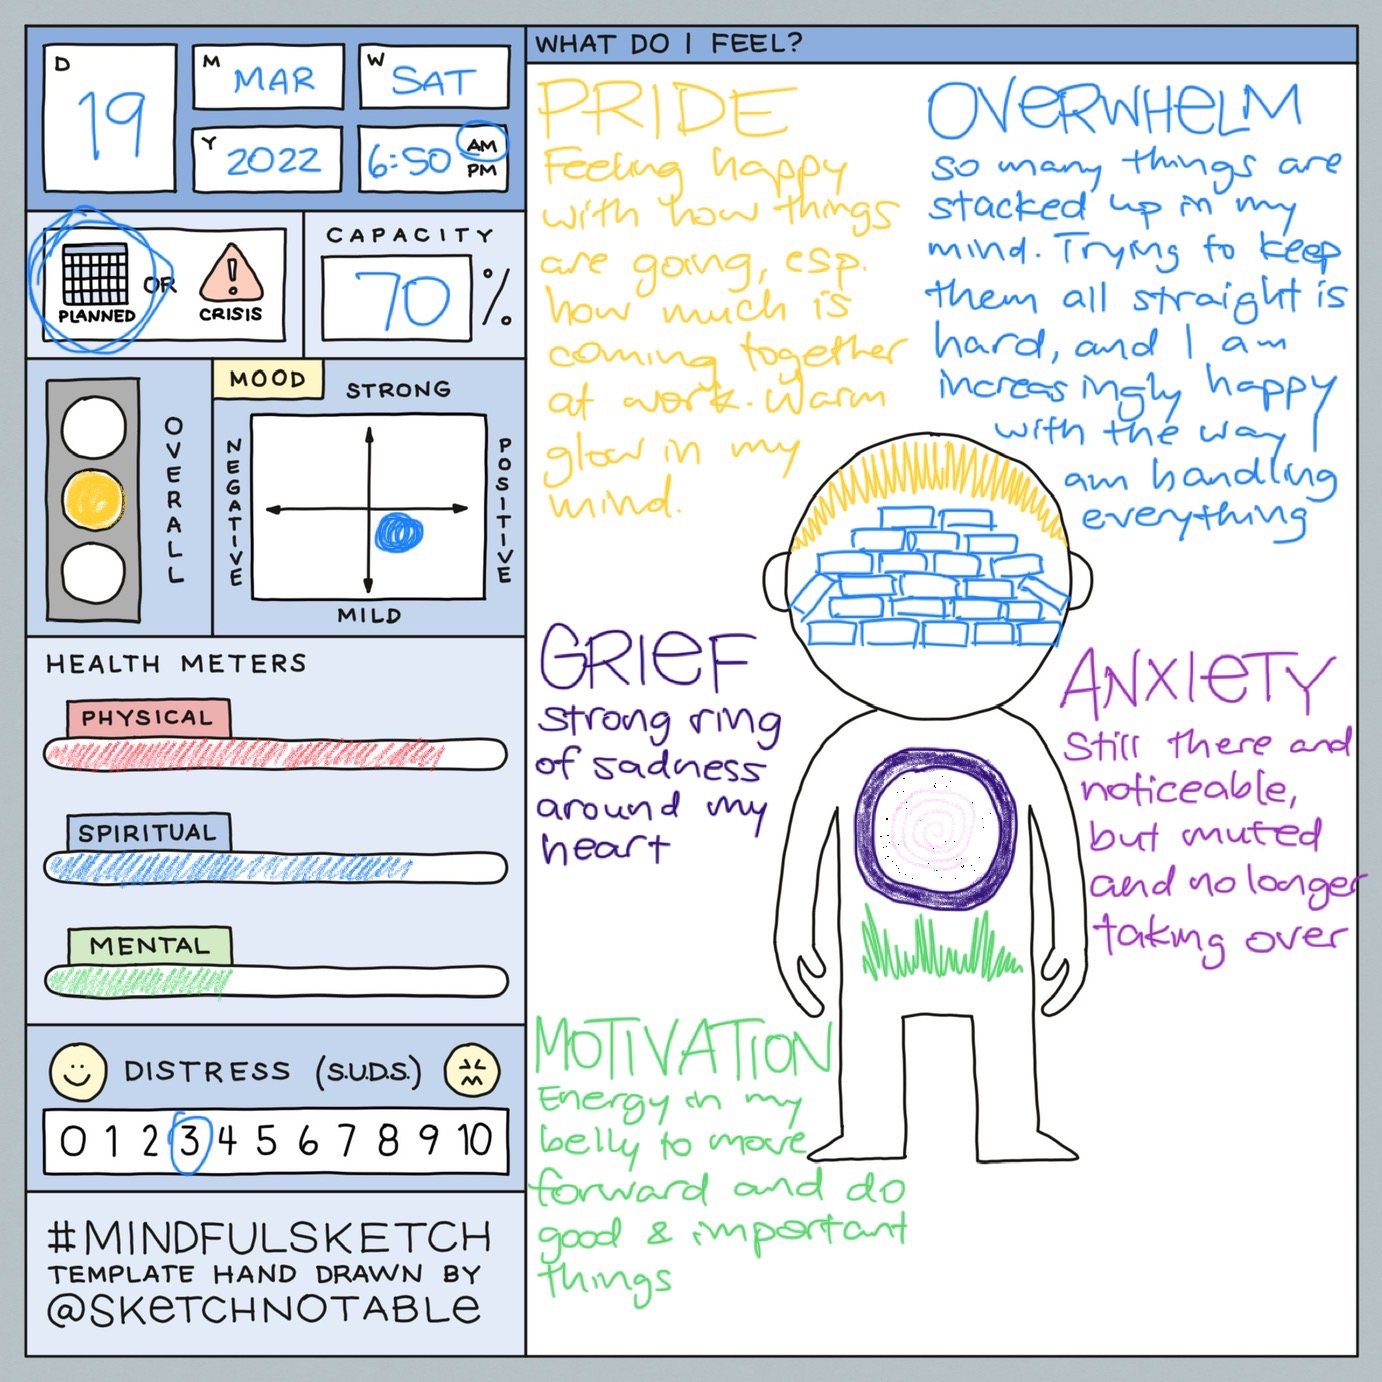 D
19
M
MAR
W
SAT
Y
2022
6:50
AM
PM
PLANNED
OR
CRISIS
CAPACITY
70
%
OVERALL
MOOD
STRONG
NEGATIVE
POSITIVE
MILD
HEALTH METERS
PHYSICAL
SPIRITUAL
MENTAL
DISTRESS (S.U.D.S.)
0 1 2 3 4 5 6 7 8 9 10
#MINDFULSKETCH
TEMPLATE HAND DRAWN BY
@SKETCHNOTABLE
WHAT DO I FEEL?
PRIDE
Feeling happy
with how things
are going, esp.
how much is
coming together
at work. Warm
glow in my
mind.
OVERWHELM
so many things are
stacked up in my
mind. Trying to keep
them all straight is
hard, and I am
increasingly happy
with the way I
am handling
everything
GRIEF
strong ring
of sadness
around my
heart
ANXIETY
Still there and
noticeable,
but muted
and no longer
taking over
MOTIVATION
Energy in my
belly to move
forward and do
good & important
things